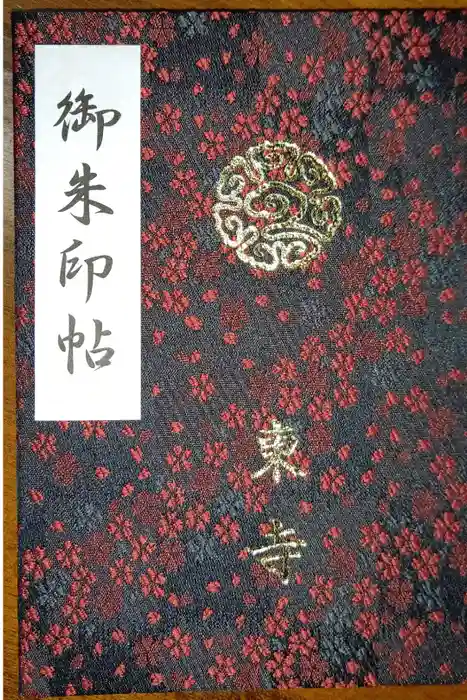 御朱印帖
東寺